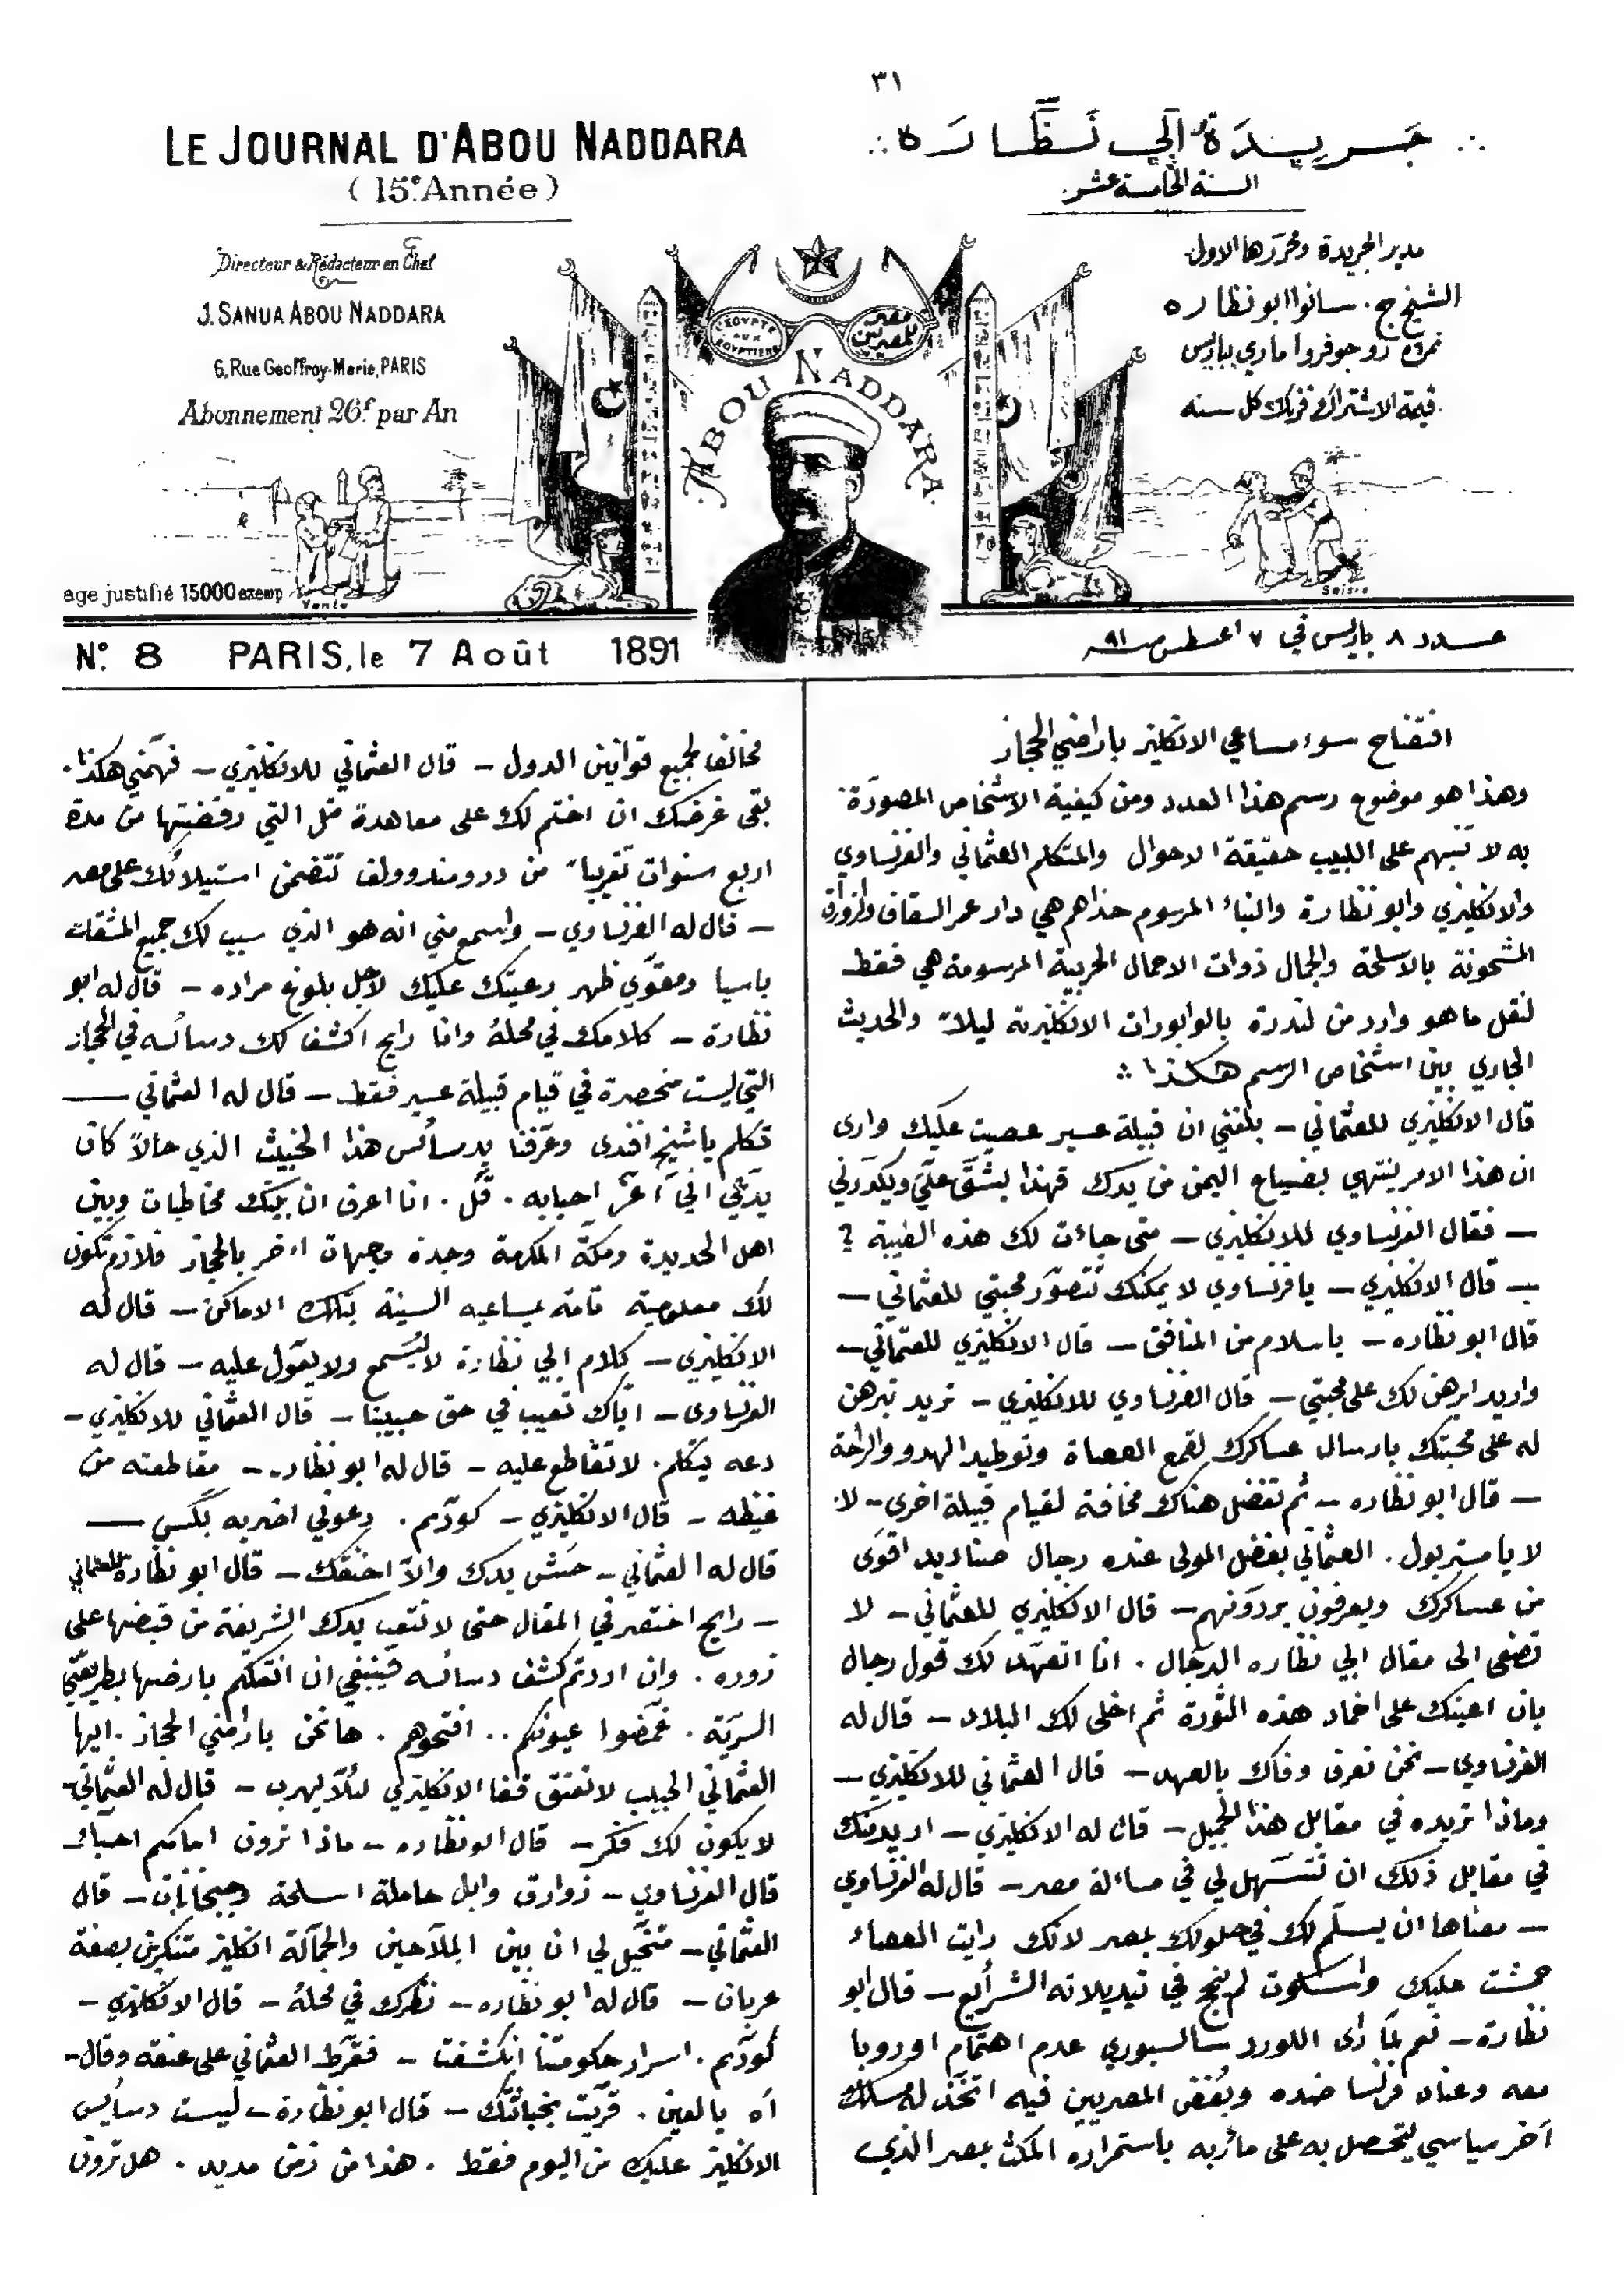 ٣١
LE JOURNAL D'ABOU NADDARA
(15e Année)
Directeur & Rédacteur en Chef
J. SANUA ABOU NADDARA
6, Rue Geoffroy-Marie, PARIS
Abonnement 26f par An
جَريدَةُ أَبِي نَظَّارَه
السنة الخامسة عشر
مدير الجريدة ومحررها الاول
الشيخ ج. سانوا ابو نظاره
نمرة ٦ رو جوفروا ماري بباريس
قيمة الاشتراك فرنك كل سنه
L'EGYPTE AUX EGYPTIENS
مصر للمصريين
ABOU NADDARA
age justifié 15000 exemp
Vente
Saisie
No. 8 PARIS, le 7 Août 1891
عدد ٨ باريس في ٧ اغسطس سنة ٩١
افتضاح سوء مساعي الانكليز باراضي الحجاز
وهذا هو موضوع رسم هذا العدد ومن كيفية الاشخاص المصورَة
به لا تنبهم على اللبيب حقيقة الاحوال والمتكلم العثماني والفرنساوي
والانكليزي وابو نظارة والبناء المرسوم حذاهم هي دار عمر السقاف والزوارق
المشحونة بالاسلحة والجمال ذوات الاحمال الحربية المرسومة هي فقط
لنقل ما هو وارد من لندرة بالوابورات الانكليزية ليلاً والحديث
الجاري بين اشخاص الرسم هكذا
قال الانكليزي للعثماني – بلغني ان قبيلة عسير عصيت عليك وارى
ان هذا الامر ينتهي بضياع اليمن من يدك فهذا يشقَّ عليَّ ويكدّرني
– فقال الفرنساوي للانكليزي – متى جاءت لك هذه الطيبة ?
– قال الانكليزي – يا فرنساوي لا يمكنك تتصوَّر محبتي للعثماني –
قال ابو نظاره – ياسلام من المنافق – قال الانكليزي للعثماني –
واريد ابرهن لك على محبتي – قال الفرنساوي للانكليزي – تريد تبرهن
له على محبتك بارسال عساكرك لقمع العصاة وتوطيد الهدو والراحة
– قال ابو نظاره – ثم تفضل هناك مخافة لقيام قبيلة اخرى – لا
لا يا مستر بول. العثماني بفضل المولى عنده رجال صناديد اقوَى
من عساكرك ويعرفون يردّونهم – قال الانكليزي للعثماني – لا
تصغى الى مقال ابي نظاره الدجال. انا اتعهَّد لك قول رجال
بان اعينك على اخماد هذه الثورة ثم اخلى لك البلاد – قال له
الفرنساوي – نحن نعرف وفاك بالعهد – قال العثماني للانكليزي –
وماذا تريده في مقابل هذا الجميل – قال له الانكليزي – اريد منك
في مقابل ذلك ان تتسهل لي في مساءلة مصر – قال له الفرنساوي
– معناها ان يسلّم لك في حلولك بمصر لانك رايت العصاء
حمشت عليك لم ينجح في تبديلاته الشرايع – قال ابو
نظارة – نعم لمّا رأى اللورد سالسبوري عدم اهتمام اوروبا
معه وعناد فرنسا ضده وبُغض المصريين فيه اتخَّذ له مسلك
آخر سياسي ليتحصل به على مآربه باستمراره المكث بمصر الذي
مخالف لجميع قوانين الدول – قال العثماني للانكليزي – فهّمني هكذا.
بقى غرضك ان اختم لك على معاهدة مثل التي رفضتها من مدة
اربع سنوات تقريباً من درومند وولف تتضمن استيلائك على مصر
– قال له الفرنساوي – واسمع مني انه هو الذي سبب لك جميع المشقات
باسيا ومقوّي ظهر رعيتك عليك لاجل بلوغ مراده – قال له ابو
نظارة – كلامك في محلهُ وانا رايح اكشف لك دسائسه في الحجاز
التي ليست منحصرة في قيام قبيلة عسير فقط – قال له العثماني –
تكلم يا شيخ افندى وعرّفنا بدسائس هذا الخبيث الذي حالاً كان
يدّعي اليَّ اَعزّ احبابه. قُل. انا اعرف ان بينك مخاطبات وبين
اهل الحديدة ومكّة المكرمة وجدة وجهات اخر بالحجاز فلازم تكون
لك معلومية تامة بمساعيه السيئة بتلك الاماكن – قال له
الانكليزي – كلام ابي نظارة لا يُسَمع ولا يعوّل عليه – قال له
الفرنساوى – ايّاك تعيب في حق حبيبنا – قال العثماني للانكليزي –
دعه يتكلم. لا تقاطع عليه – قال له ابو نظاره – مقاطعته من
غيظه – قال الانكليزي – كودّم. دعوني اضربه بكس –
قال له العثماني – حَش يدك والاّ اخنقك – قال ابو نظارة للعثماني
– رايح اختصر في المقال حتى لا تتعب يدك الشريفة من قبضها على
زوره. وان اردتم كشف دسائسه فينبغي ان انقلكم بارضها بطريقتي
السريّة. غمّضوا عيونكم.. افتحوهم. ها نحن باراضي الحجاز. ايها
العثماني الحبيب لا تعتق قفا الانكليزي لئلاّ يهرب – قال له العثماني –
لا يكون لك فكر – قال ابو نظاره – ماذا ترون امامكم احباب
قال الفرنساوي – زوارق وابل حاملة اسلحة وجبخانات – قال
العثماني – متخيّل لي ان بين الملاّحين والجمّالة انكليز متنكرين بصفة
عربان – قال له ابو نظاره – نظرك في محلهُ – قال الانكليزي –
كودّم. اسرار حكومتنا انكشفت – فقرَّط العثماني على عنقه وقال –
آه يا لعين. قرّيت بخباثتك – قال ابو نظارة – ليست دسايس
الانكليز عليك من اليوم فقط. هذا من زمن مديد. هل ترون